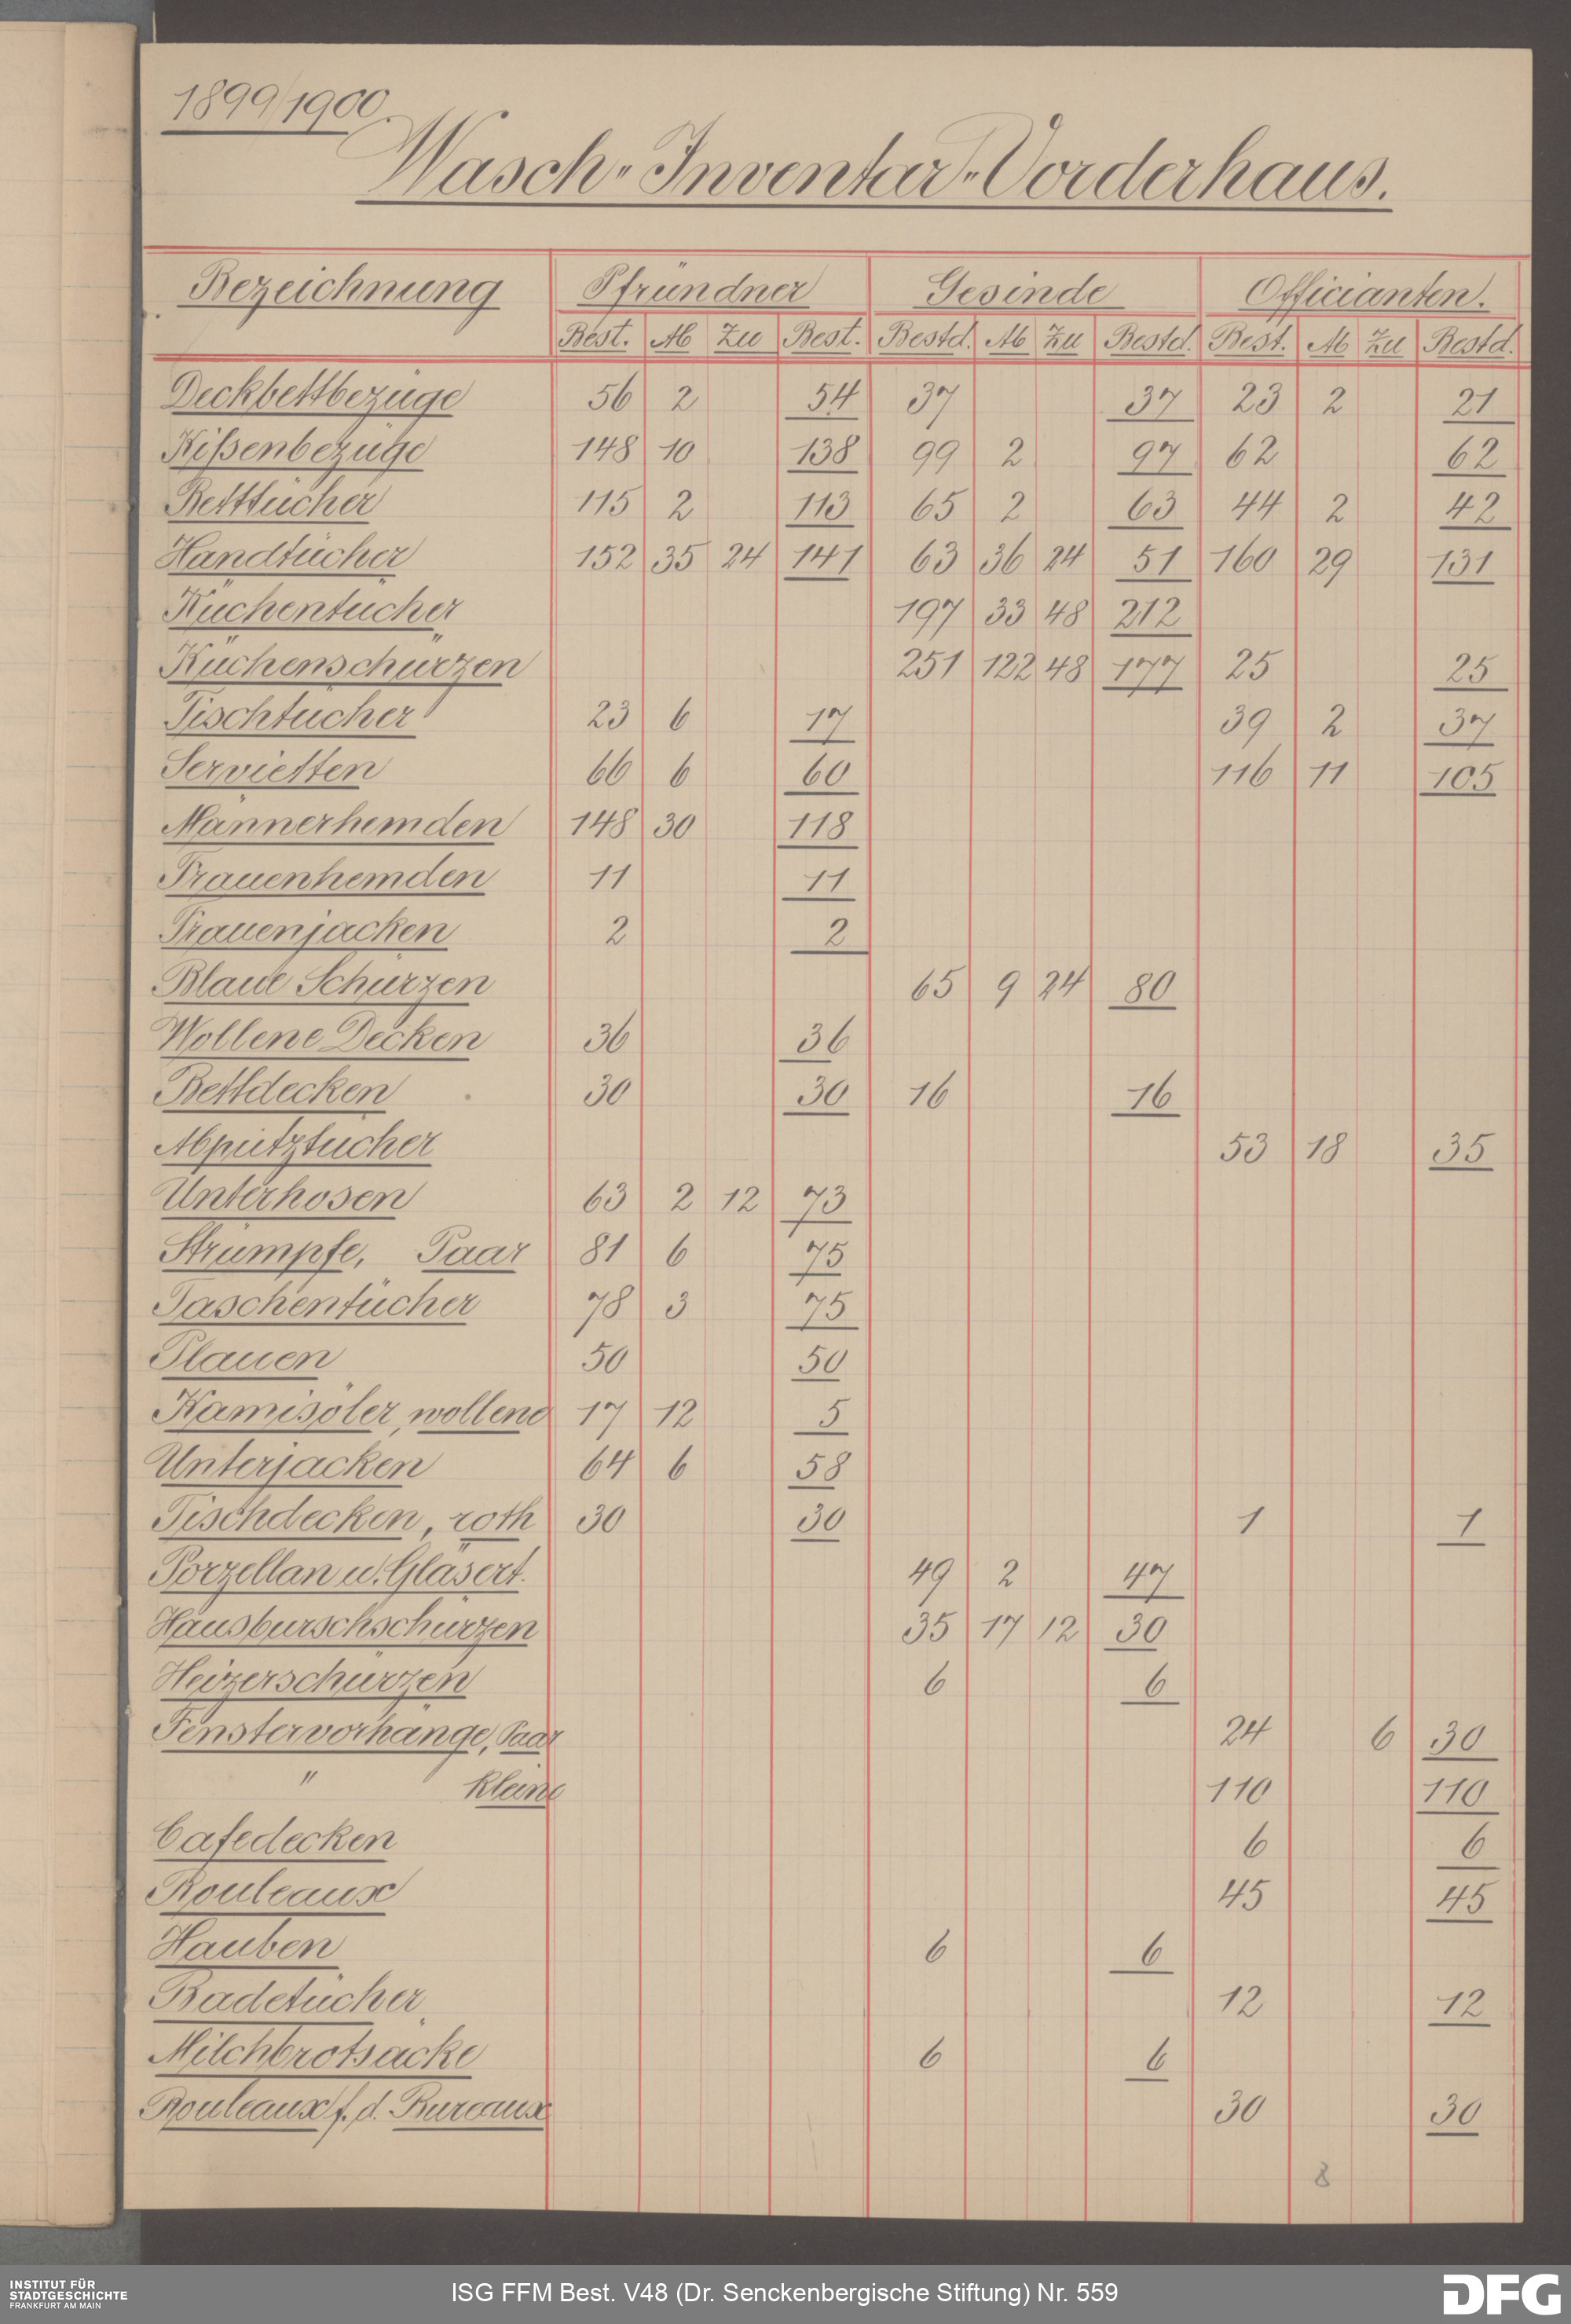 1899/1900
Wasch-Inventar-Vorderhaus.
Bezeichnung Pfründner Gesinde Officianten.
Best. Ab Zu Best. Bestd. Ab Zu Bestd. Best. Ab Zu Bestd.
Deckbettbezüge 56 2 54 37 37 23 2 21
Kißenbezüge 148 10 138 99 2 97 62 62
Betttücher 115 2 113 65 2 63 44 2 42
Handtücher 152 35 24 141 63 36 24 51 160 29 131
Küchentücher 197 33 48 212
Küchenschürzen 251 122 48 177 25 25
Tischtücher 23 6 17 39 2 37
Servietten 66 6 60 116 11 105
Männerhemden 148 30 118
Frauenhemden 11 11
Frauenjacken 2 2
Blaue Schürzen 65 9 24 80
Wollene Decken 36 36
Bettdecken 30 30 16 16
Abputztücher 53 18 35
Unterhosen 63 2 12 73
Strümpfe, Paar 81 6 75
Taschentücher 78 3 75
Plauen 50 50
Kamisöler, wollene 17 12 5
Unterjacken 64 6 58
Tischdecken, roth 30 30 1 1
Porzellan u. Gläsert. 49 2 47
Hausburschschürzen 35 17 12 30
Heizerschürzen 6 6
Fenstervorhänge, Paar 24 6 30
" kleine 110 110
Cafedecken 6 6
Rouleaux 45 45
Hauben 6 6
Badetücher 12 12
Milchbrotsäcke 6 6
Rouleaux f. d. Bureaux 30 30
8
INSTITUT FÜR
STADTGESCHICHTE
FRANKFURT AM MAIN
ISG FFM Best. V48 (Dr. Senckenbergische Stiftung) Nr. 559
DFG